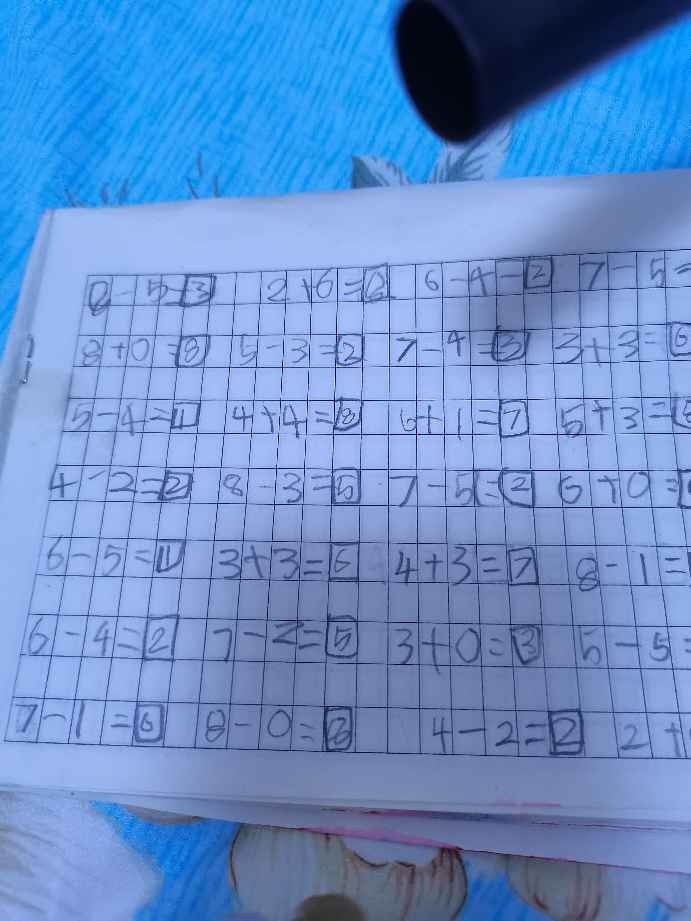 8-5=3 2+6=8 6-4=2 7-5=
8+0=8 5-3=2 7-4=3 3+3=6
5-4=1 4+4=8 6+1=7 5+3=
4-2=2 8-3=5 7-5=2 6+0=
6-5=1 3+3=6 4+3=7 8-1=
6-4=2 7-2=5 3+0=3 5-5=
7-1=6 8-0=8 4-2=2 2+